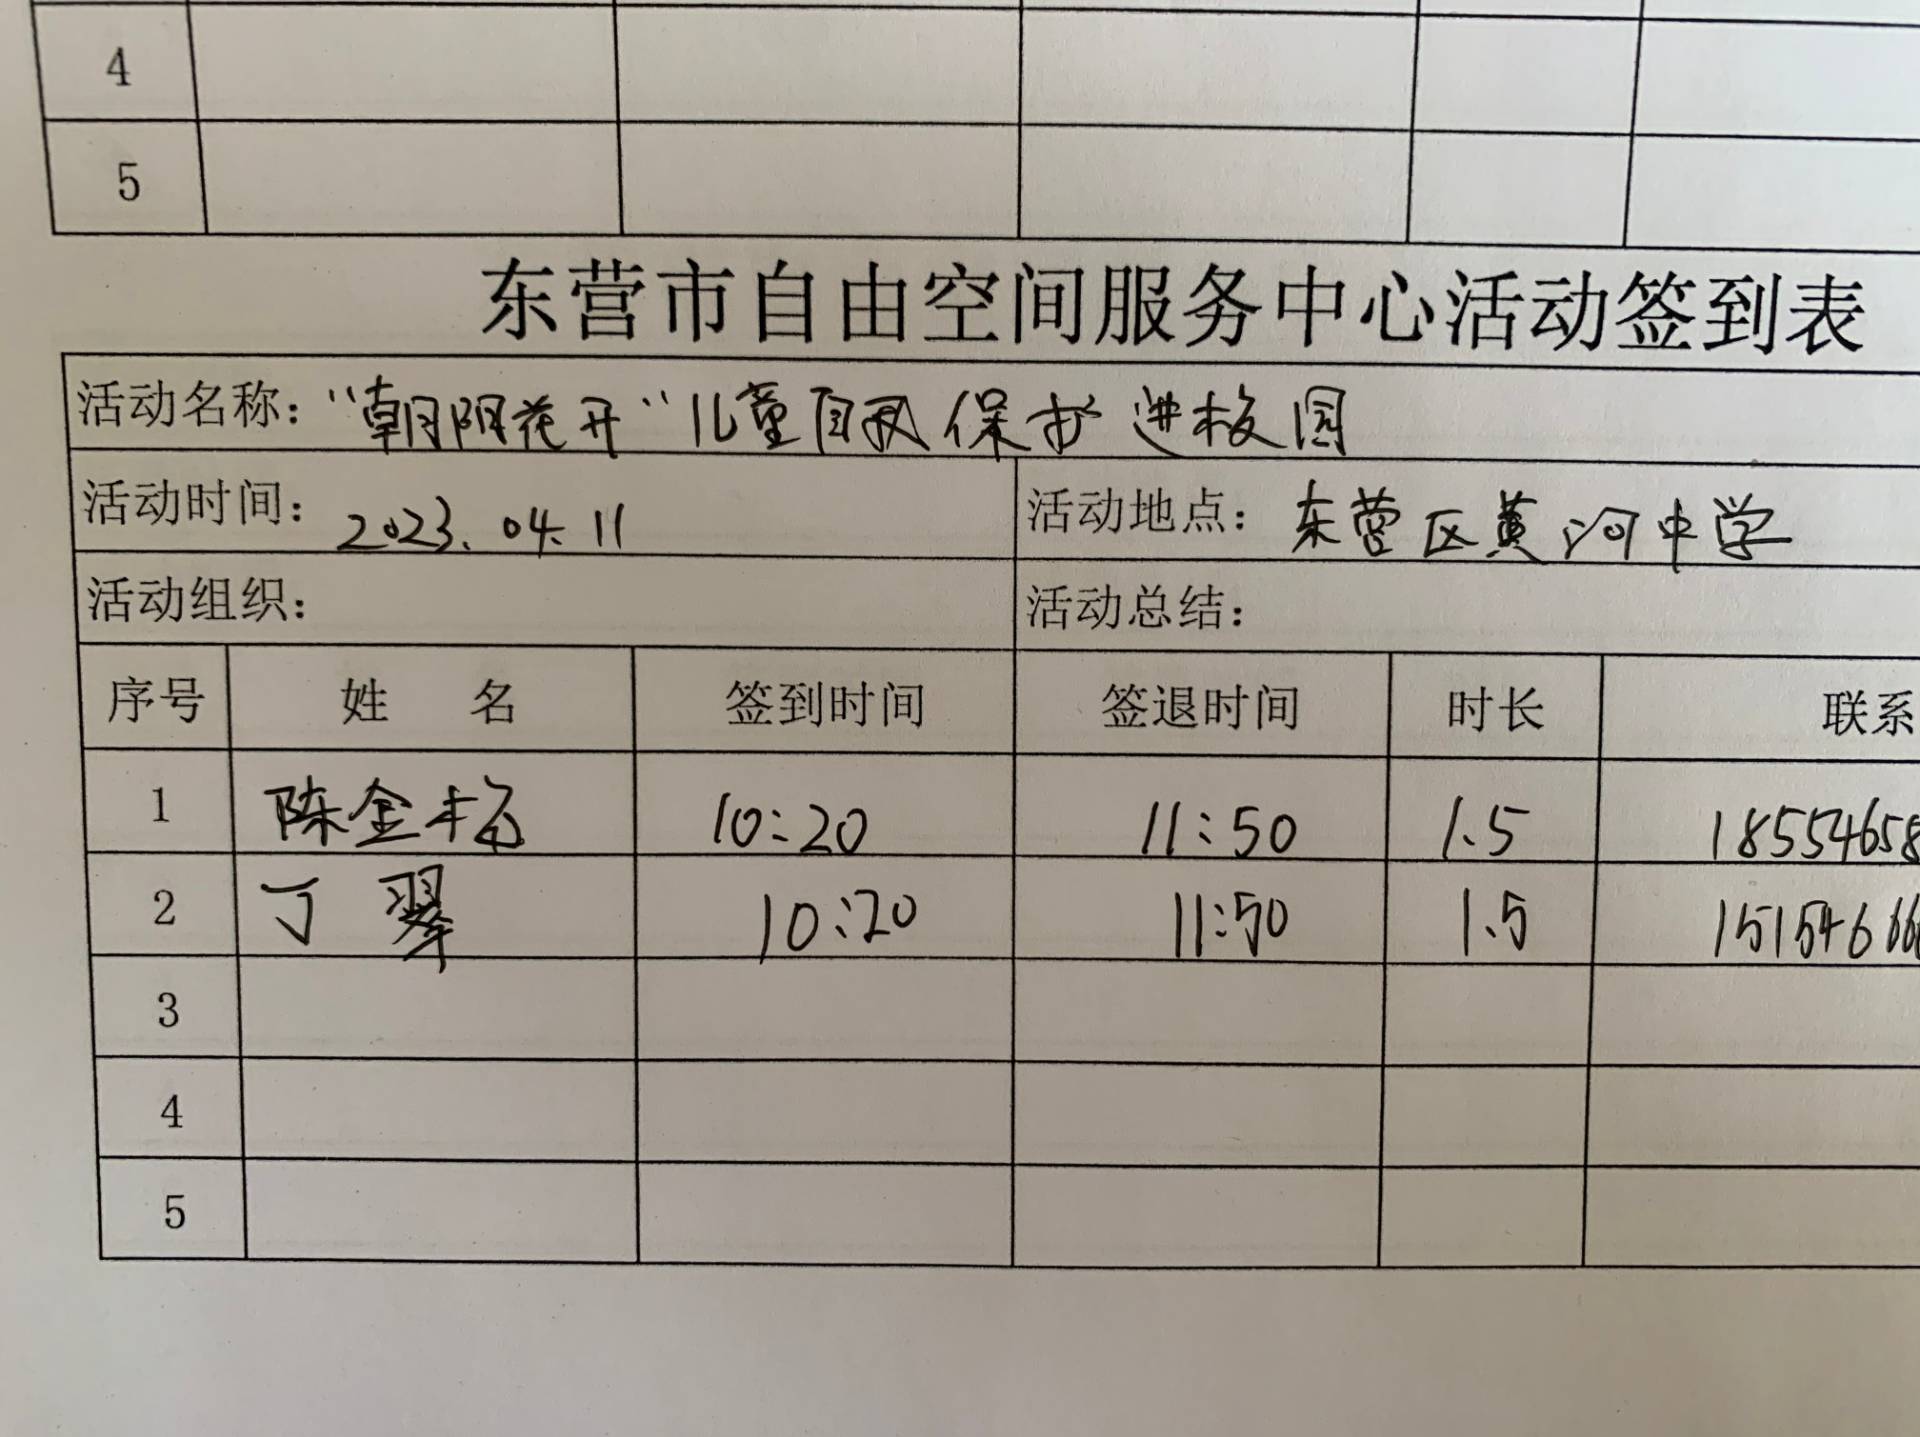 4
5
东营市自由空间服务中心活动签到表
活动名称：“朝阳花开”儿童自我保护进校园
活动时间：2023.04.11 活动地点：东营区黄河中学
活动组织： 活动总结：
序号 姓 名 签到时间 签退时间 时长 联系
1 陈金梅 10:20 11:50 1.5 18554658
2 丁翠 10:20 11:50 1.5 15154666
3
4
5